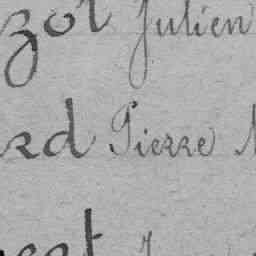 zot Julien
rd Pierre